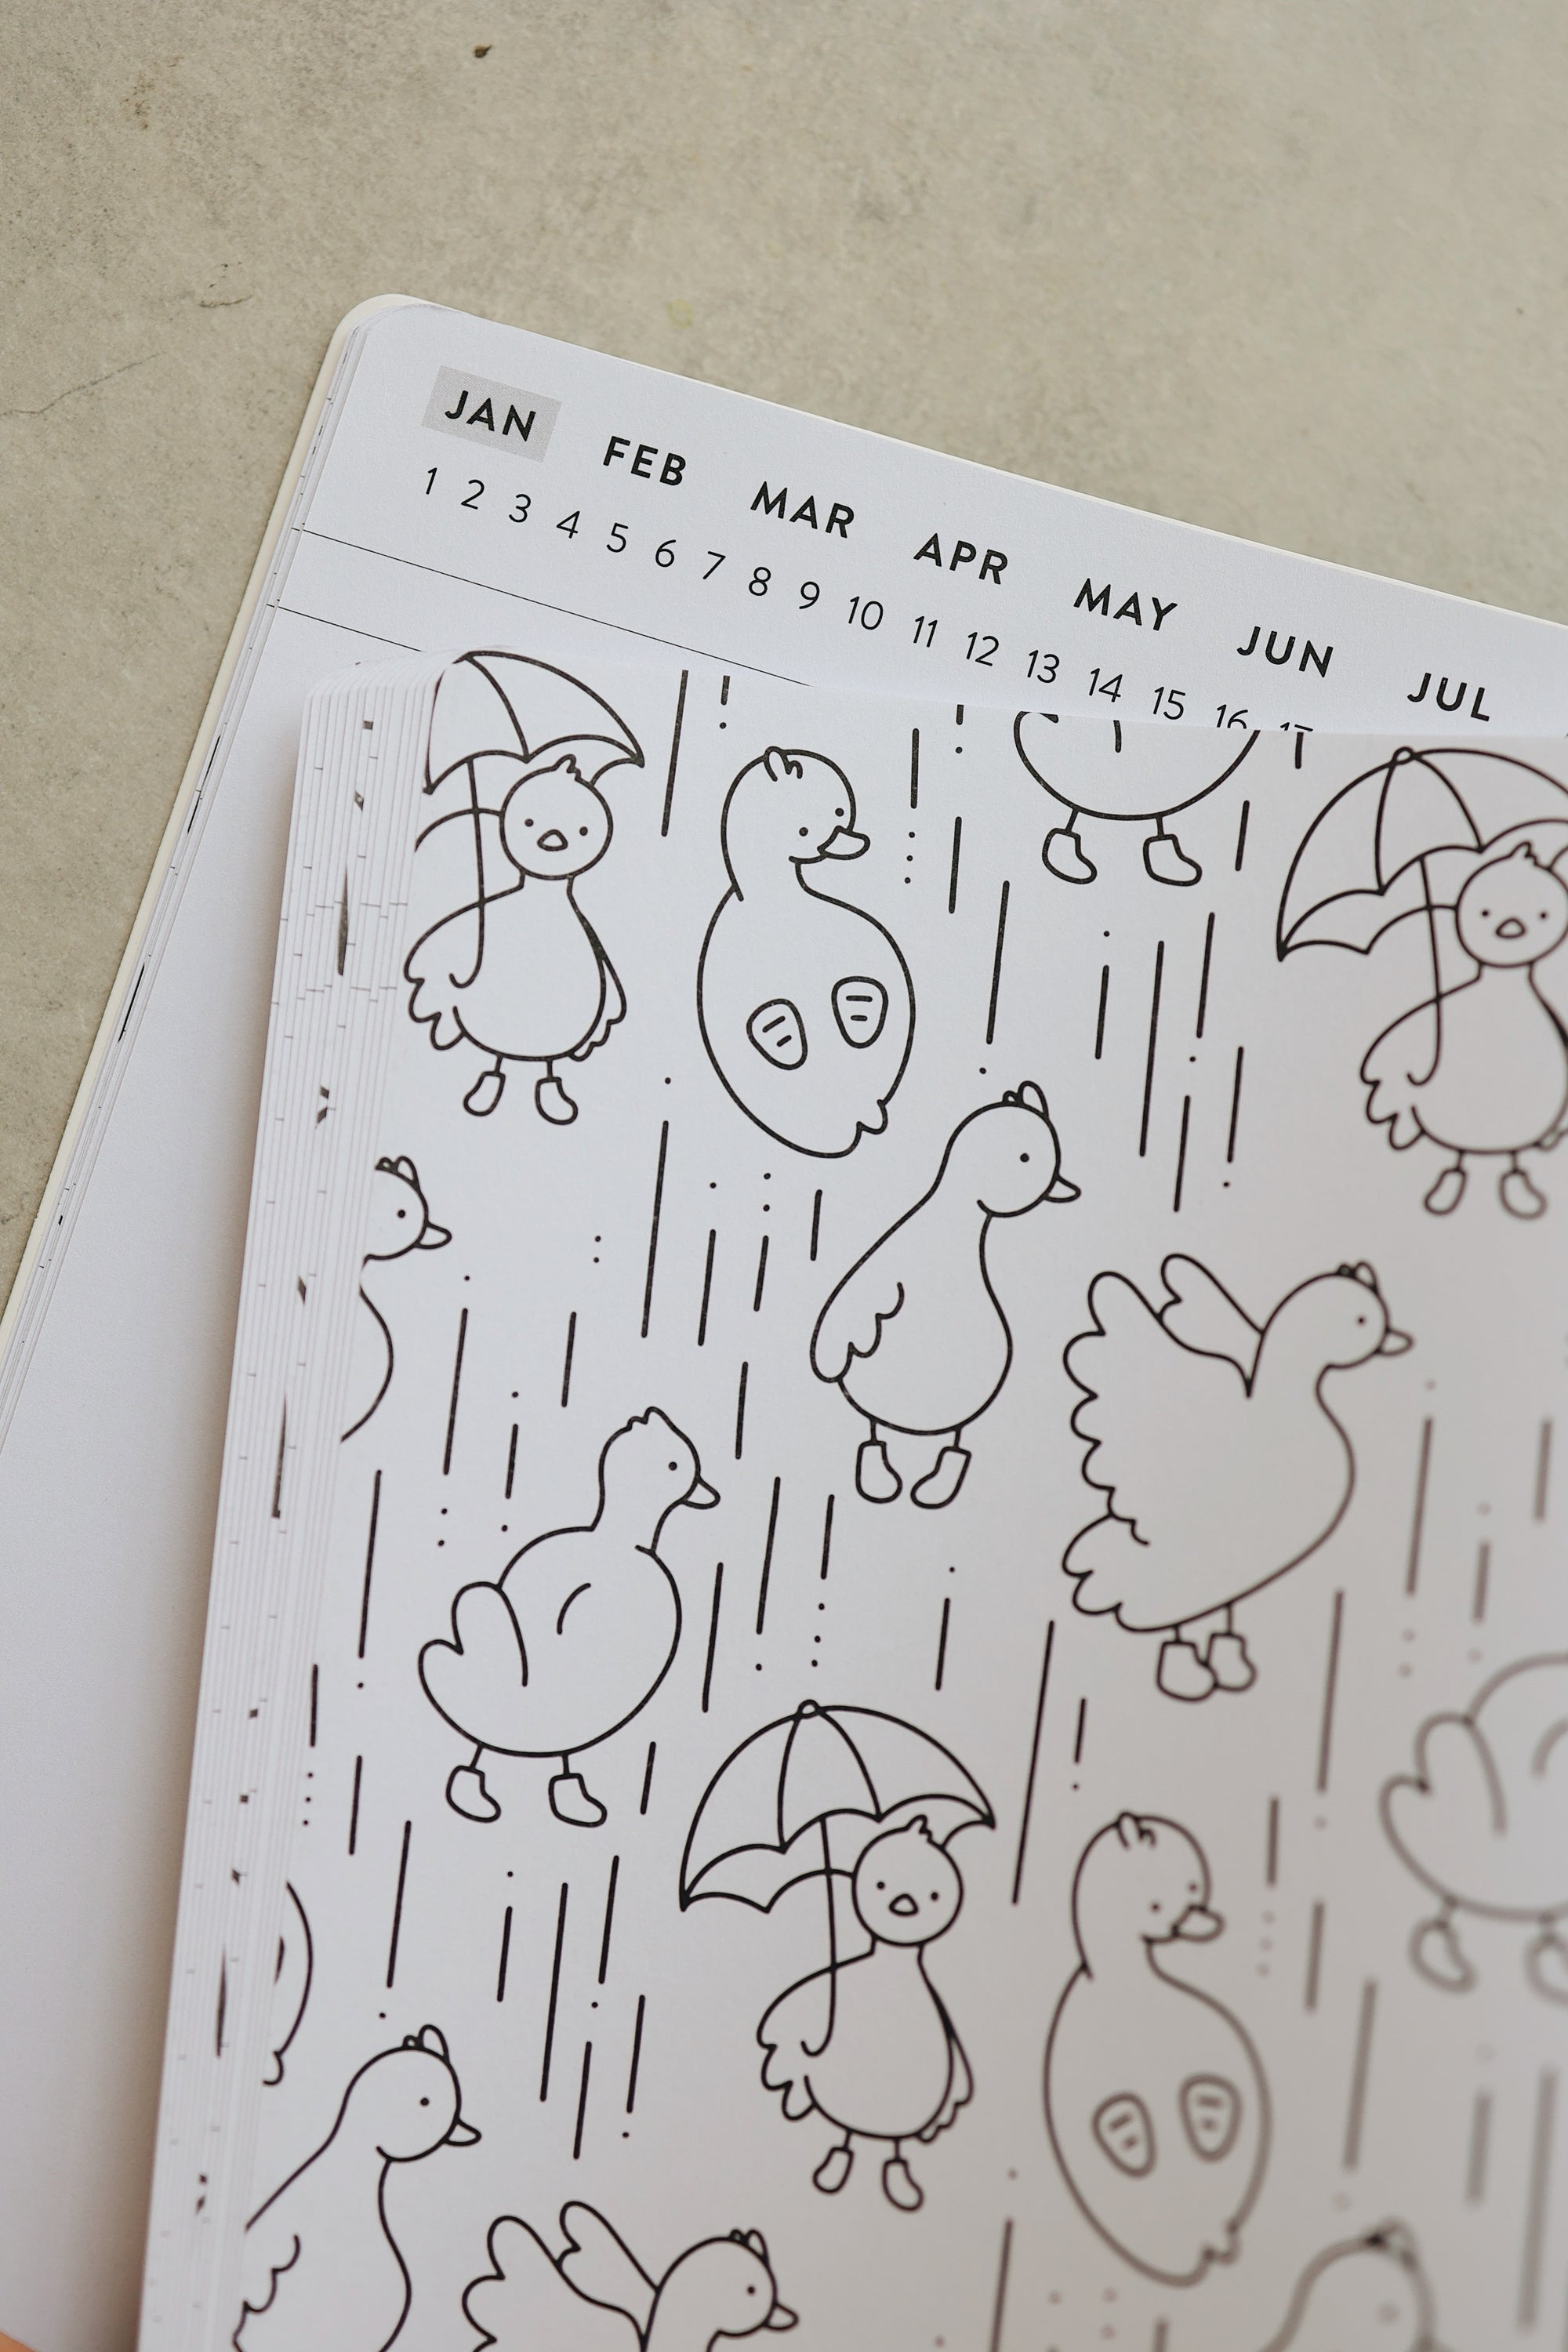 JAN FEB MAR APR MAY JUN JUL
1 2 3 4 5 6 7 8 9 10 11 12 13 14 15 16 17